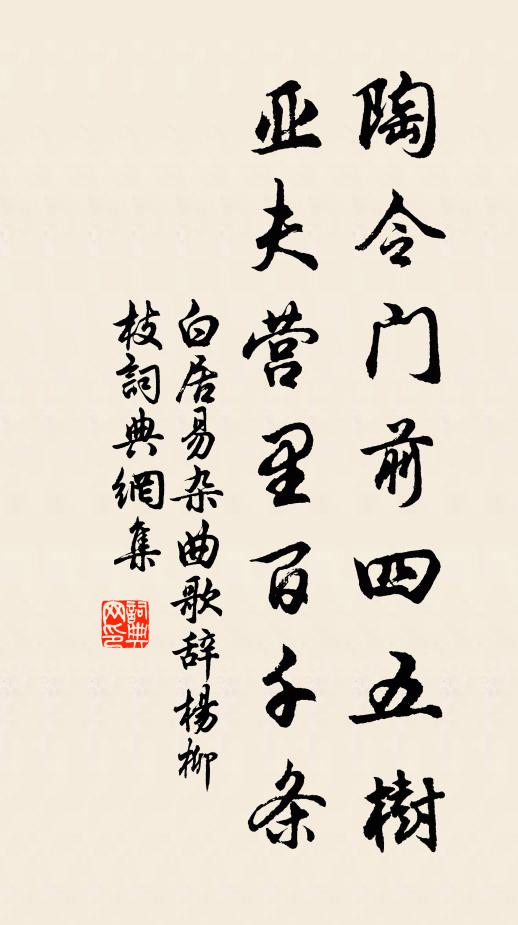 陶令门前四五樹
亚夫营里百千条
白居易杂曲歌辞楊柳
枝詞典網集
詞典
网印